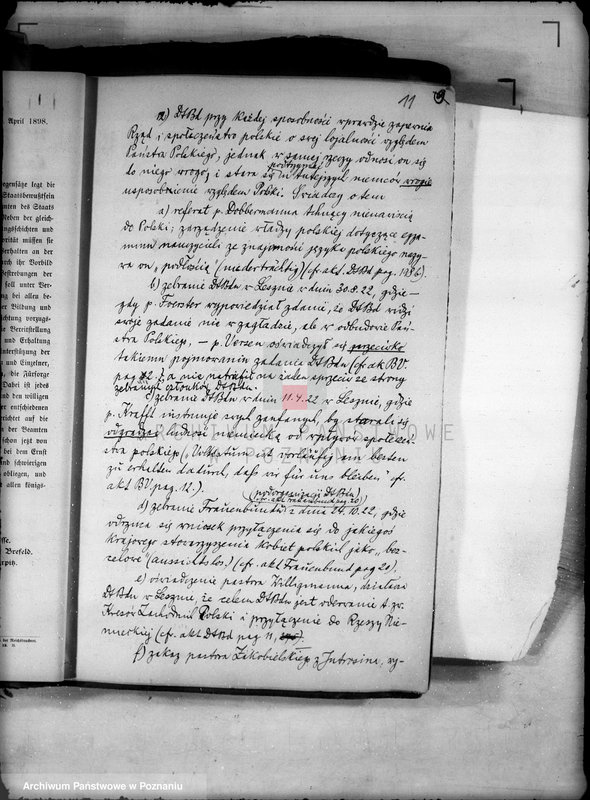 April 1898.
egensätze legt die
Staatsbewußtsein
amten des Staats
Neben der gleich-
ngsschichten und
orität müssen sie
Verhalten an der
rch ihr Vorbild
Bestrebungen der
soll unter Ver-
ng bei allen be-
er Bildung und
chtung vorzugs-
ie Vereinstellung
und Erhaltung
nterstützung der
und Einzelner,
g, die Fürsorge
Dabei ist jedes
nd den willigen
er entschiedenen
erichtet auf die
n der Beamten
schon jetzt von
bei dem Ernst
nd schwierigen
obliegen, und
t allen königs-
Brefeld.
rpitz.
11
a) DtBd przy każdej sposobności wprawdzie zapewnia
Rząd i społeczeństwo polskie o swej lojalności względem
Państwa Polskiego, jednak w samej rzeczy odnosi on się
do niego wrogo, i stara się podtrzymać w tutejszych niemców wrogie
usposobienie względem Polski. Świadczy o tem
a) referat p. Dobbermanna tchnący nienawiścią
do Polski; zarządzenie władzy polskiej dotyczące egza-
minu nauczycieli ze znajomości języka polskiego nazy-
wa on „podłością" (niederträchtig) (cf. akt. DtBd pag. 1986).
b) zebranie DtBdu w Lesznie w dniu 30.8.22, gdzie —
gdy p. Foerster wypowiedział zdanie, że DtBd widzi
swoje zadanie nie w zagładzie, ale w odbudowie Pań-
stwa Polskiego, — p. oświadczył się przeciwko
takiemu pojmowaniu zadania DtBdu (cf. ak BV.
pag 12.), a nie natrafił na żaden sprzeciw ze strony
zebranych członków DtBdu.
c) zebranie DtBdu w dniu 11.4.22 w Lesznie, gdzie
p. Krafft instruuje swych zaufanych, by starali się
odgradzać ludność niemiecką od wpływów społeczeń-
stwa polskiego („Unser Kulturgut vorläufig am besten
zu erhalten dadurch, daß wir für uns bleiben" cf.
akt BV. pag. 12.).
(podorganizacji DtBdu)
(cf. akt Frauenbund pag 20)
d) zebranie Frauenbundu z dnia 24.10.22, gdzie
odrzuca się wniosek przyłączenia się do jakiegoś
krajowego stowarzyszenia kobiet polskich jako „bez-
celowe" (aussichtslos) (cf. akt Frauenbund pag 20).
e) oświadczenie pastora Willigmanna, działacza
DtBdu w Lesznie, że celem DtBdu jest oderwanie t. zw.
Kresów Zachodnich Polski i przyłączenie do Rzeszy Nie-
mieckiej (cf. akt DtBd pag 11,
f) zakaz pastora Zakobielskiego z Jutrosina, wy-
ARCHIWUM PAŃSTWOWE
W POZNANIU
Archiwum Państwowe w Poznaniu